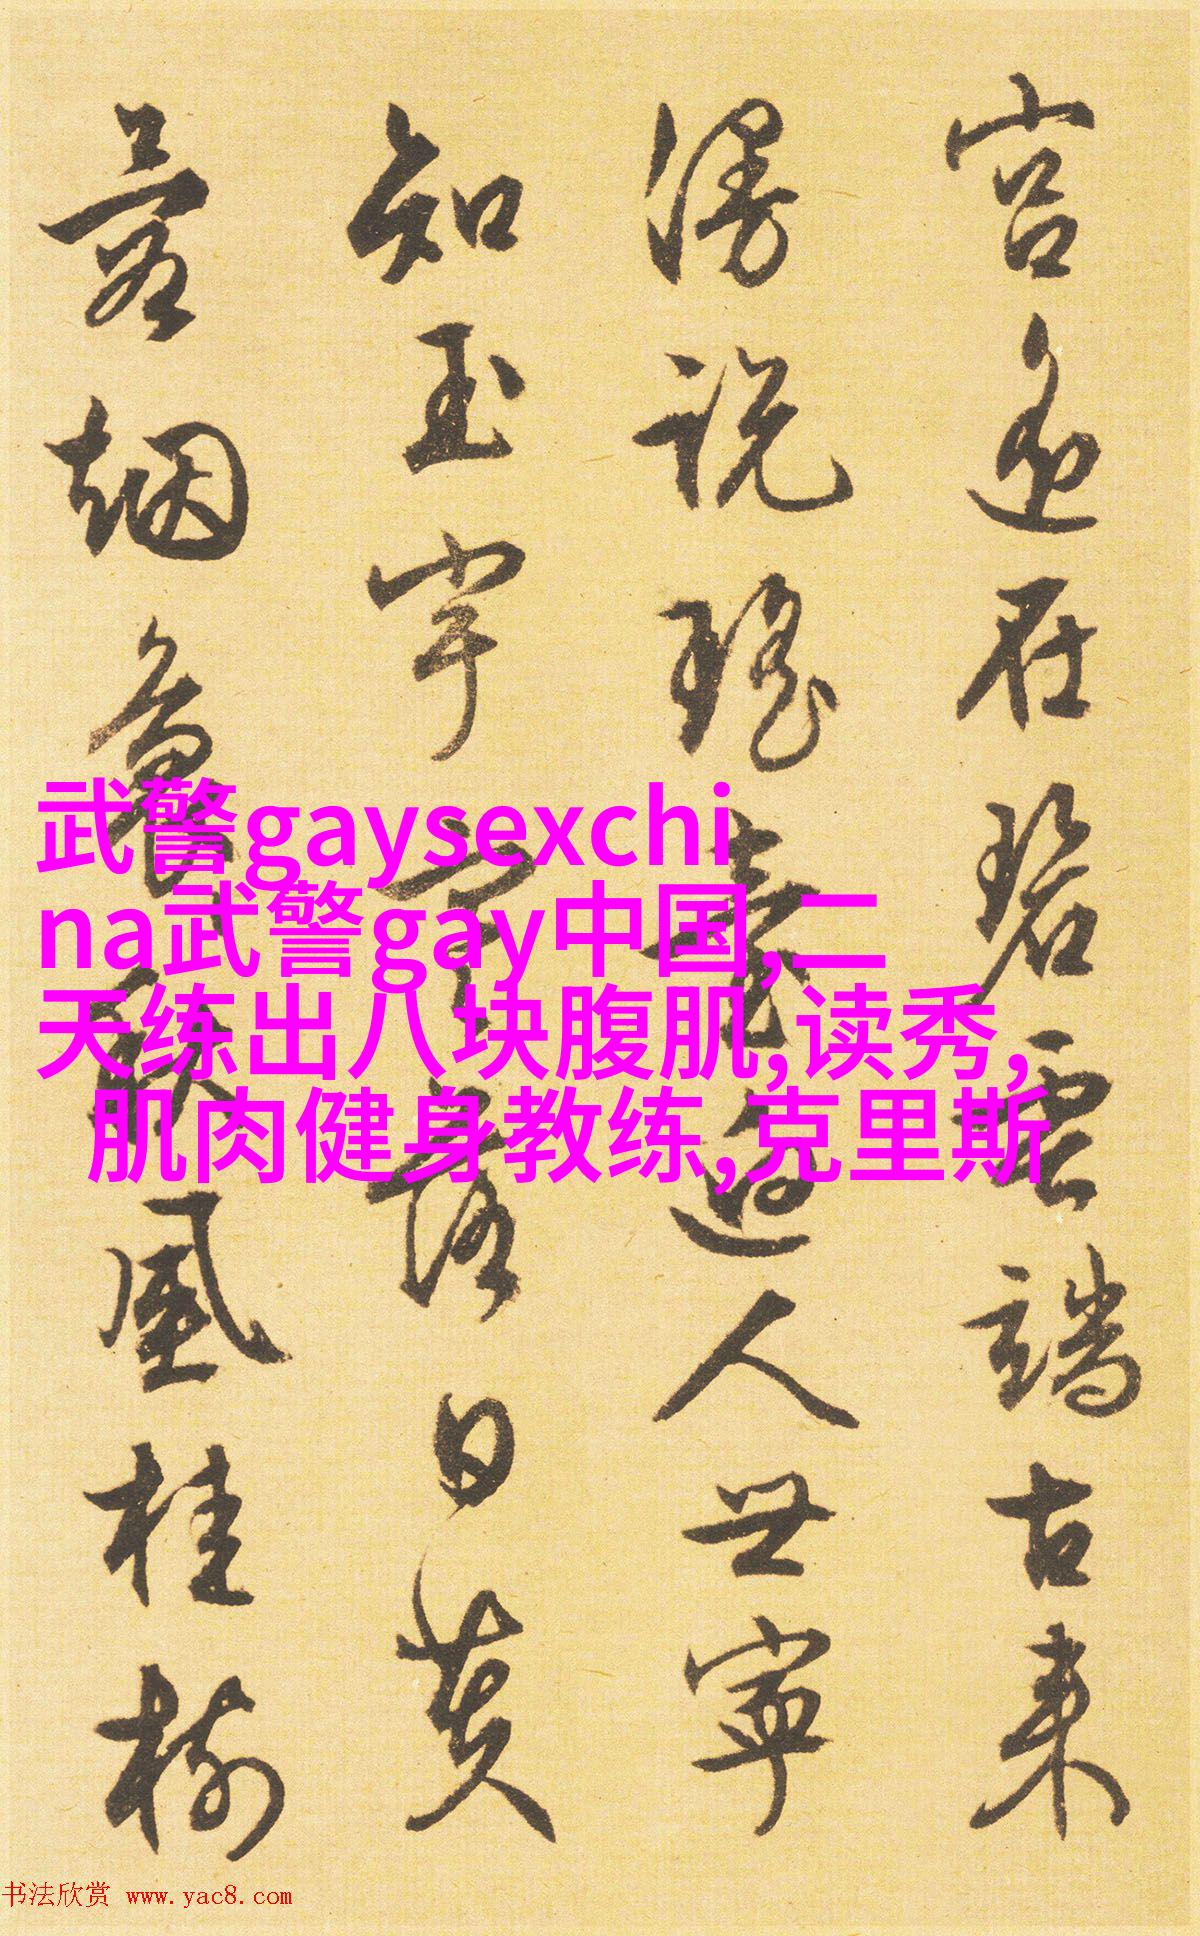 宫在碧雲端古来
漫説瑶臺迥人世寧
知玉宇落日黄
烟桂樹
武警gaysexchi
na武警gay中国,二
天练出八块腹肌,读秀,
肌肉健身教练,克里斯
书法欣赏 www.yac8.com